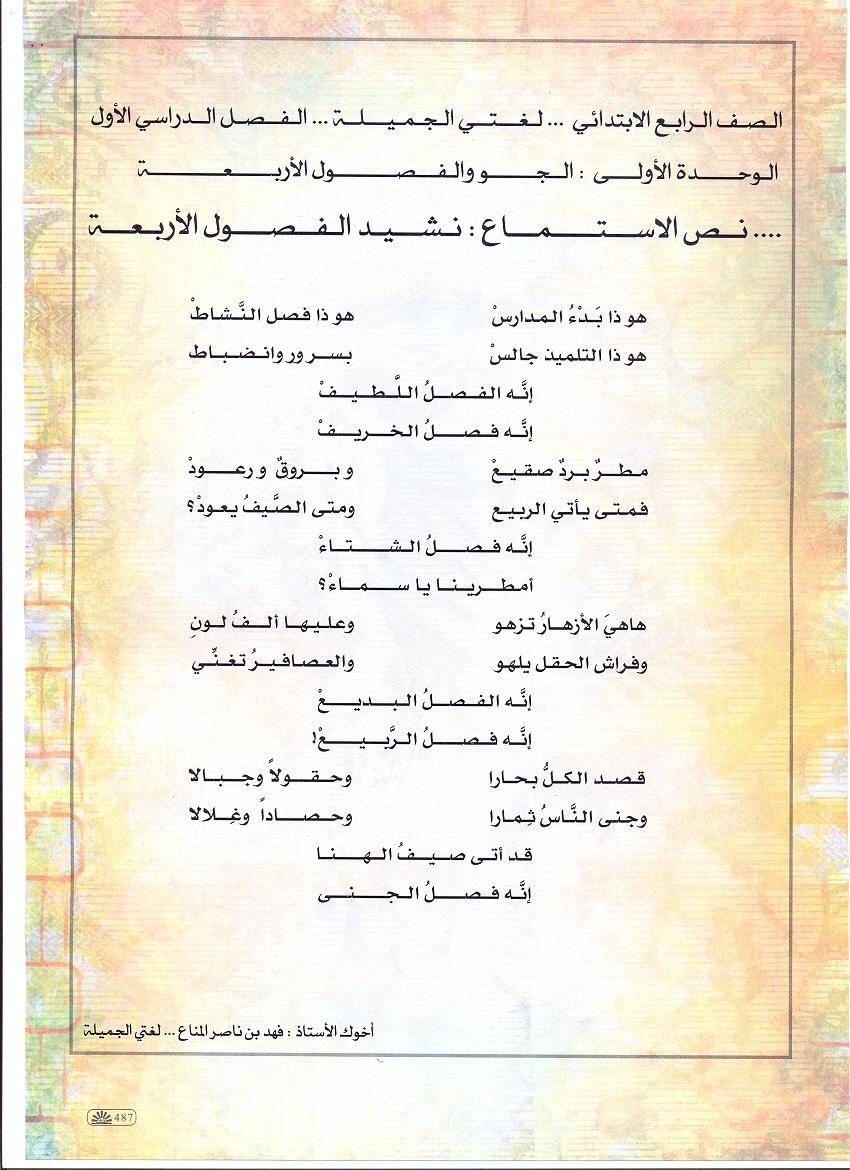 الصف الرابع الابتدائي ... لغتي الجميلة ... الفصل الدراسي الأول
الوحدة الأولى : الجو والفصول الأربعة
.... نص الاستماع : نشيد الفصول الأربعة
هو ذا بَدْءُ المدارسْ هو ذا فصل النَّشاطْ
هو ذا التلميذ جالسْ بسرور وانضباط
إنَّه الفصلُ اللَّطيفْ
إنَّه فصلُ الخريفْ
مطرٌ بردٌ صقيعْ وبروقٌ ورعودْ
فمتى يأتي الربيع ومتى الصَّيفُ يعودْ؟
إنَّه فصلُ الشتاءْ
أمطرينا يا سماءْ؟
هاهيَ الأزهارُ تزهو وعليها ألفُ لونِ
وفراش الحقل يلهو والعصافيرُ تغنِّي
إنَّه الفصلُ البديعْ
إنَّه فصلُ الرَّبيعْ!
قصد الكلُّ بحارا وحقولاً وجبالا
وجنى النَّاسُ ثِمارا وحصاداً وغِلالا
قد أتى صيفُ الهنا
إنَّه فصلُ الجنى
أخوك الأستاذ : فهد بن ناصر المناع ... لغتي الجميلة
487